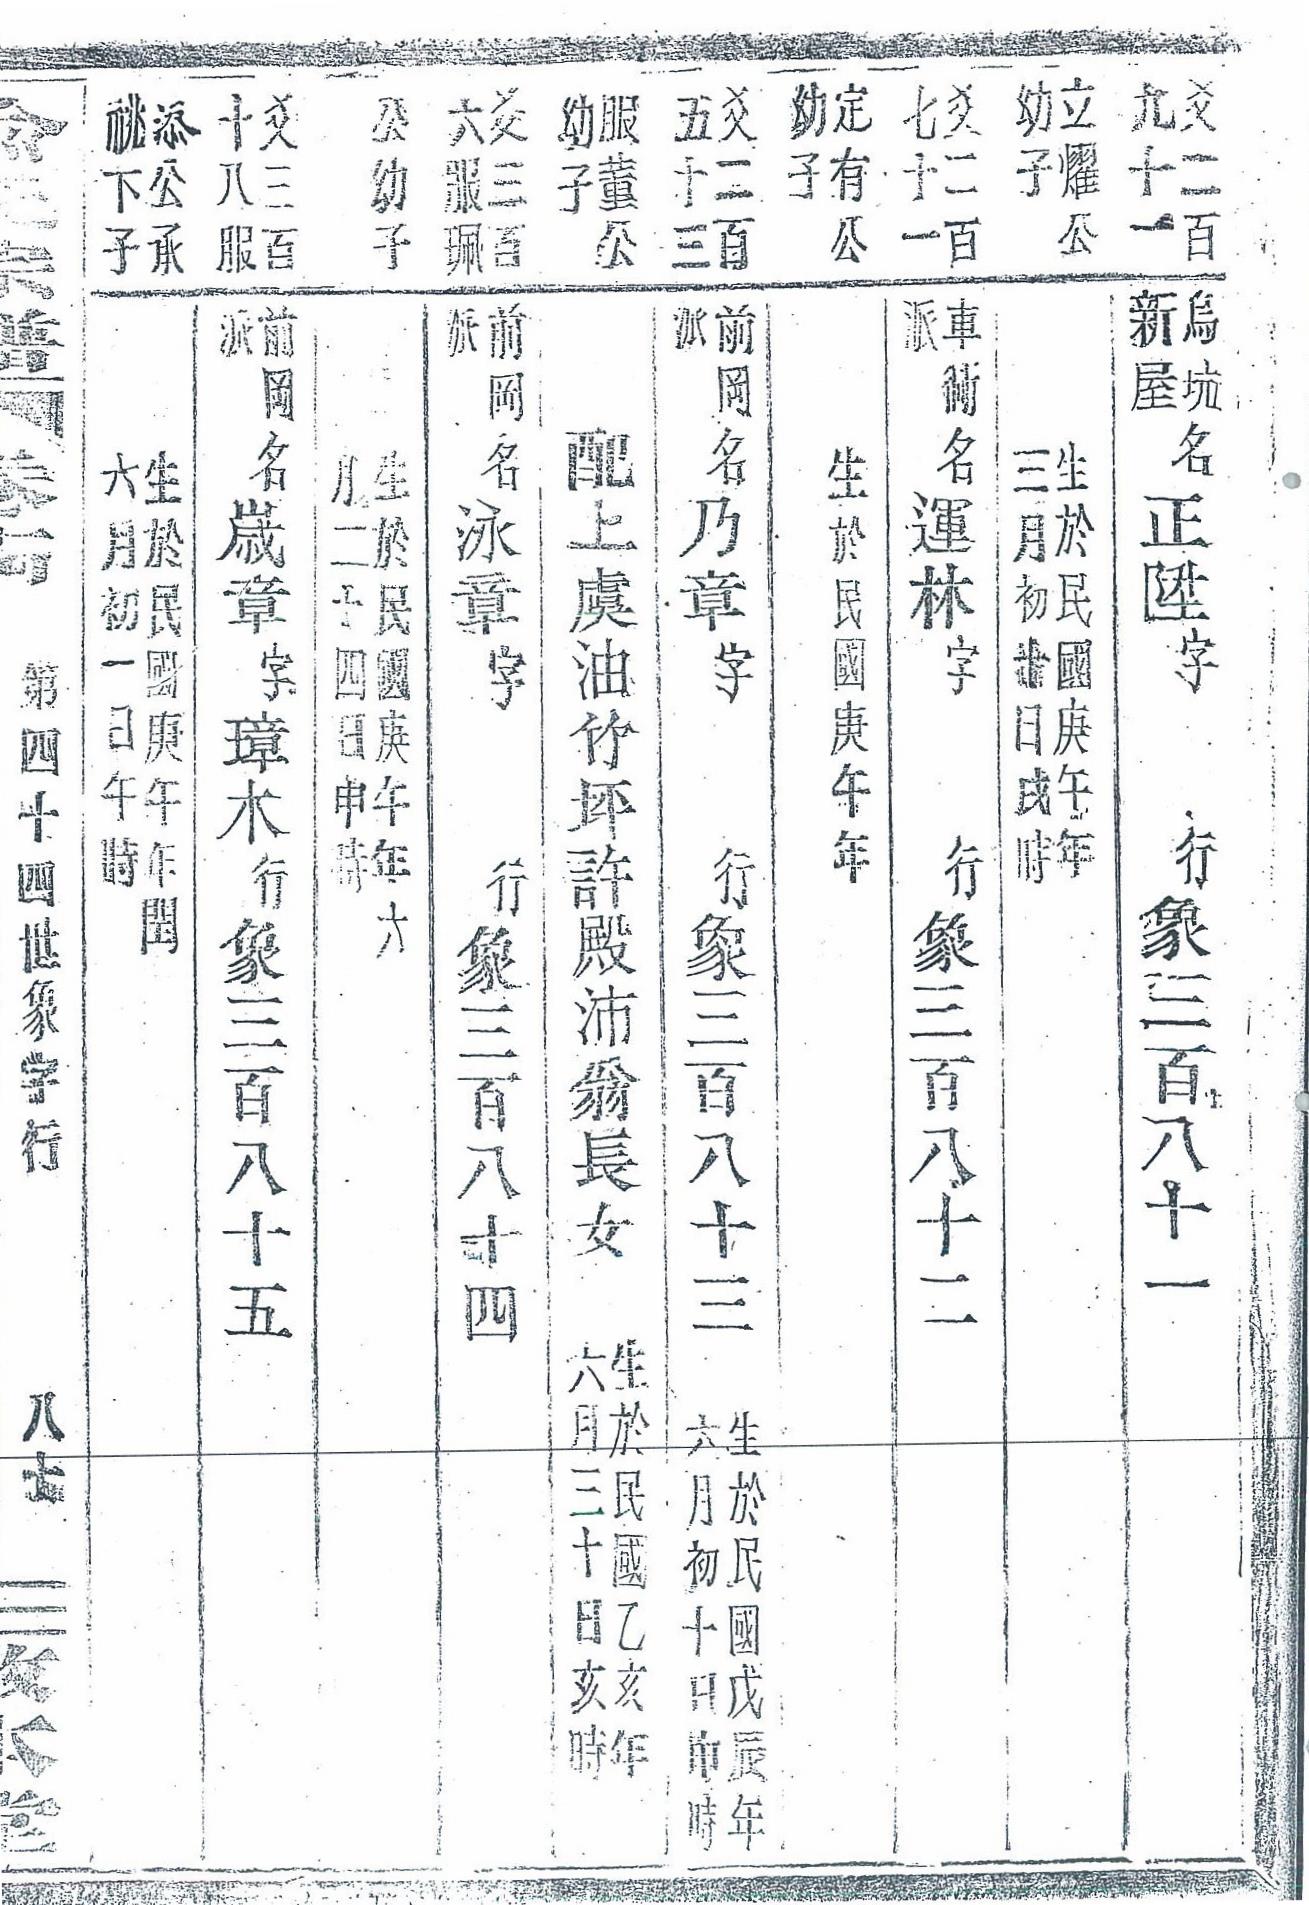 爻二百
九十一
立燿公
幼子
烏坑
新屋
名正陞字 行象三百八十一
生於民國庚午年
三月初廿日戌時
爻二百
七十一
定有公
幼子
車衕
派
名運林字 行象三百八十二
生於民國庚午年
爻二百
五十三
服董公
幼子
前岡
派
名乃章字 行象三百八十三
生於民國戊辰年
六月初十日申時
配上虞油竹坪許殿沛翁長女
生於民國乙亥年
六月三十日亥時
爻三百
六服珮
公幼子
前岡
派
名泳章字 行象三百八十四
生於民國庚午年六
月二十四日申時
爻三百
十八服
添公承
祧下子
前岡
派
名歲章字璋木行象三百八十五
生於民國庚午年閏
六月初一日午時
第四十四世象字行
八十